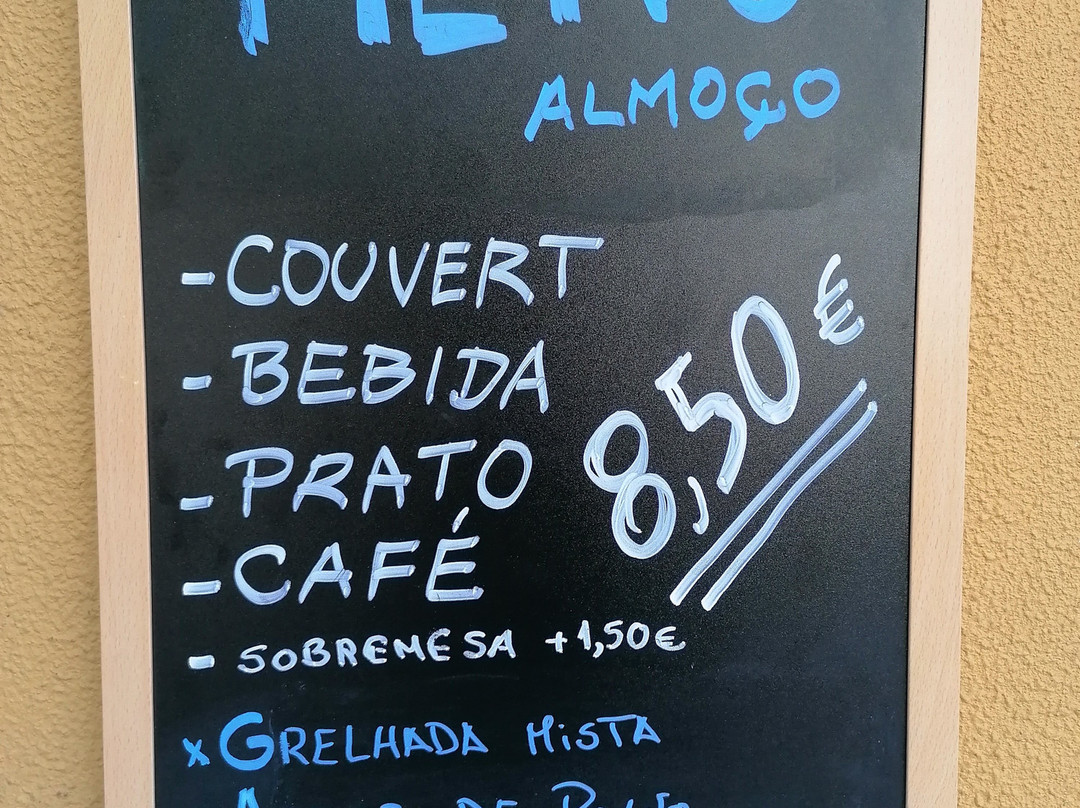 MENU
ALMOÇO
- COUVERT
- BEBIDA
- PRATO
- CAFÉ
8,50€
- SOBREMESA +1,50€
x GRELHADA MISTA
DE